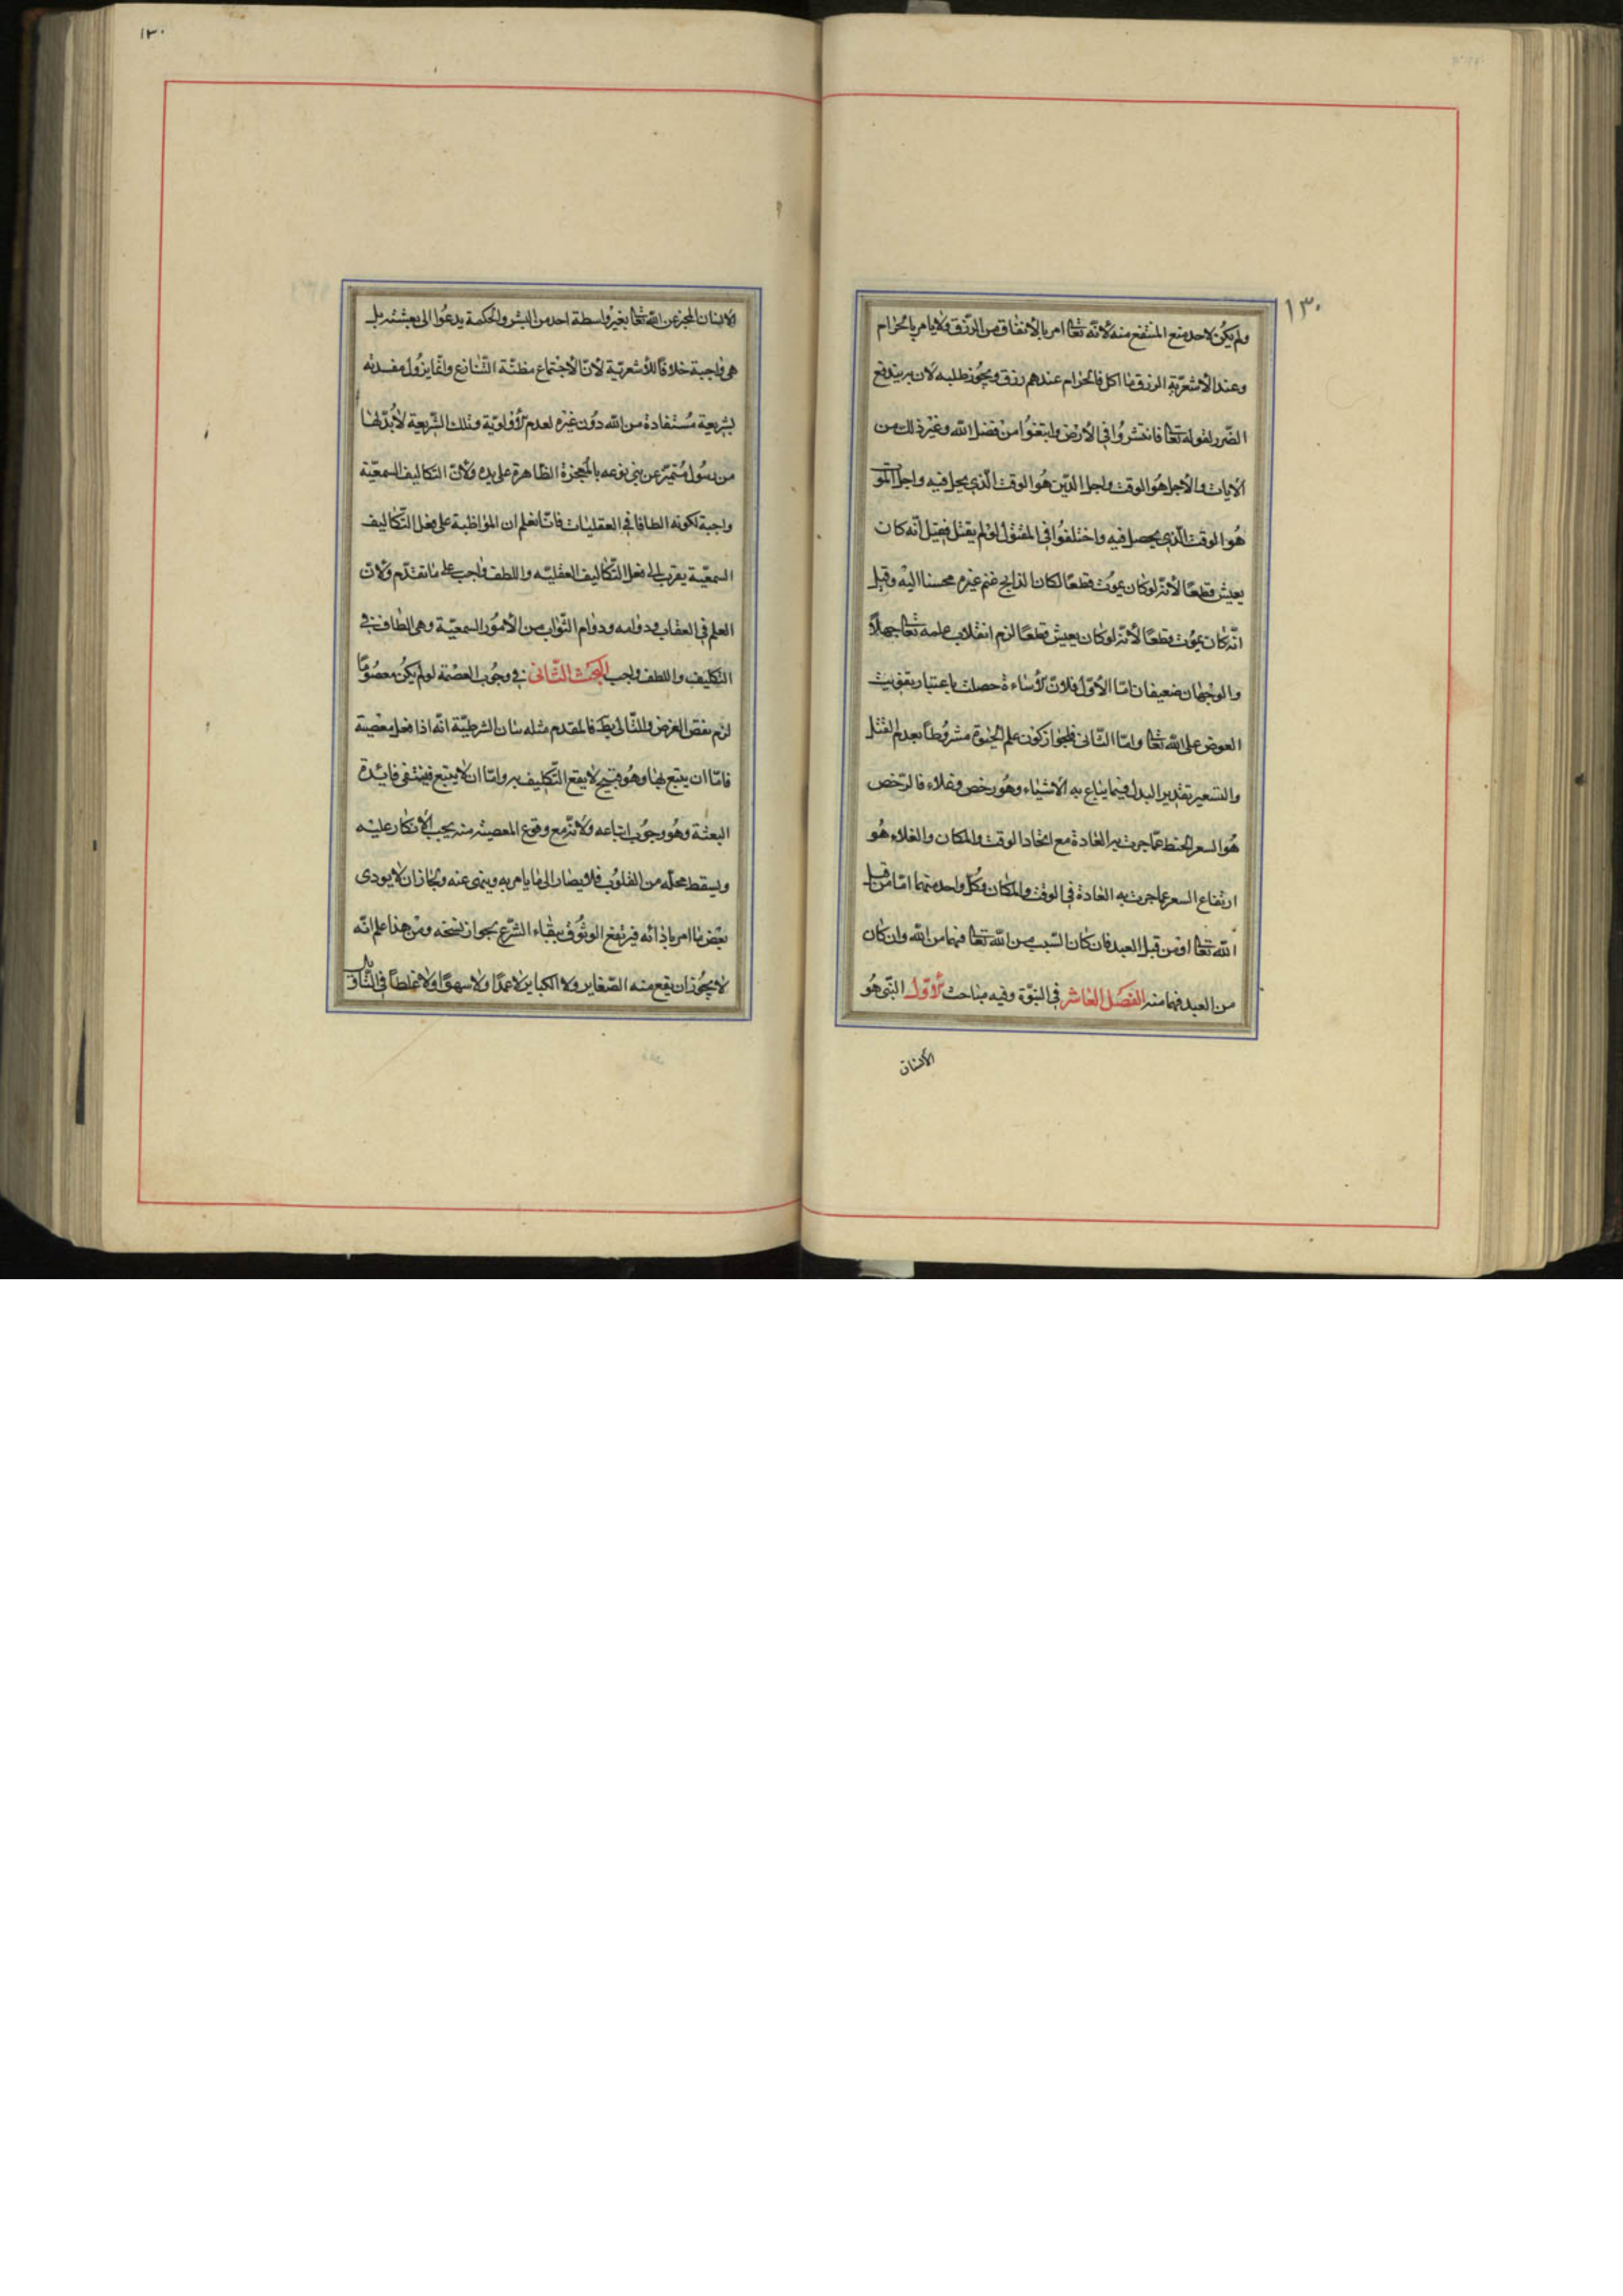 ١٣٠
ولم يكن لاحد منع المنتفع منه لانّه تعالى امر بالانفاق من الرّزق ولا يامر بالحرام
وعند الاشعريّة الرزق ما اكل فالحرام عندهم رزق ويجوز طلبه لان به يندفع
الضّرر لقوله تعالى فانتشروا في الارض وابتغوا من فضل الله وغير ذلك من
الايات والاجل هو الوقت واجل الدّين هو الوقت الّذي يحل فيه واجل الموت
هو الوقت الّذي يحصل فيه واختلفوا في المقتول لو لم يقتل فقيل انّه كان
يعيش قطعًا لانّه لو كان يموت قطعًا لكان الذابح غنم غيره محسنا اليه وقيل
انّه كان يموت قطعًا لانّه لو كان يعيش قطعًا لزم انقلاب علمه تعالى جهلاً
والوجهان ضعيفان امّا الاوّل فلانّ الاساءة حصلت باعتبار تفويت
العوض على الله تعالى وامّا الثّاني فلجواز كون علم الحيوة مشروطاً بعدم القتل
والتسعير تقدير البدل فيما يباع به الاشياء وهو رخص وغلاء فالرّخص
هو السعر المنحط عمّا جرت به العادة مع اتحاد الوقت والمكان والغلاء هو
ارتفاع السعر عما جرت به العادة في الوقت والمكان وكلّ واحد منهما امّا من قبل
الله تعالى او من قبل العبد فان كان السّبب من الله تعالى فهما من الله وان كان
من العبد فهما منه الفصل العاشر في النبوّة وفيه مباحث الاوّل النبّي هو
الانسان
١٣٠
الانسان المخبر عن الله تعالى بغير واسطة احد من البشر والحكمة يدعوا الى بعثته بل
هي واجبة خلافًا للاشعريّة لانّ الاجتماع مظنّة التّنازع وانّما يزول مفسدته
بشريعة مستفادة من الله دون غيره لعدم الاولويّة وتلك الشّريعة لابدّ لها
من رسول متميّز عن بني نوعه بالمعجزة الظّاهرة على يده ولانّ التكاليف السمعيّة
واجبة لكونه الطافا في العقليات فانّا نعلم ان المواظبة على فعل التّكاليف
السمعيّة يقرب الى فعل التّكاليف العقليّه واللطف واجب على ما تقدّم ولانّ
العلم في العقاب ودوامه ودوام الثّواب من الامور السمعيّة وهي الطاف في
التكليف واللطف واجب البحث الثّاني في وجوب العصمة لو لم يكن معصومًا
لزم نقض الغرض والتّالي بط فالمقدم مثله بيان الشرطيّة انّه اذا فعل معصية
فامّا ان يتبع لها وهو قبيح لا يقع التّكليف به وامّا ان لا يتبع فينتفي فايدة
البعثة وهو وجوب اتباعه ولانّه مع وقوع المعصيته منه يجب الانكار عليه
ويسقط محله من القلوب فلا يصار الى ما يامر به وينهى عنه ولجاز ان لا يودى
بعض ما امر باذائه فيرتفع الوثوق ببقاء الشّرع بجواز نسخه ومن هذا علم انّه
لا يجوز ان يقع منه الصّغاير ولا الكباير لا عمدًا ولا سهوًا ولا غلطاً في التّاويل